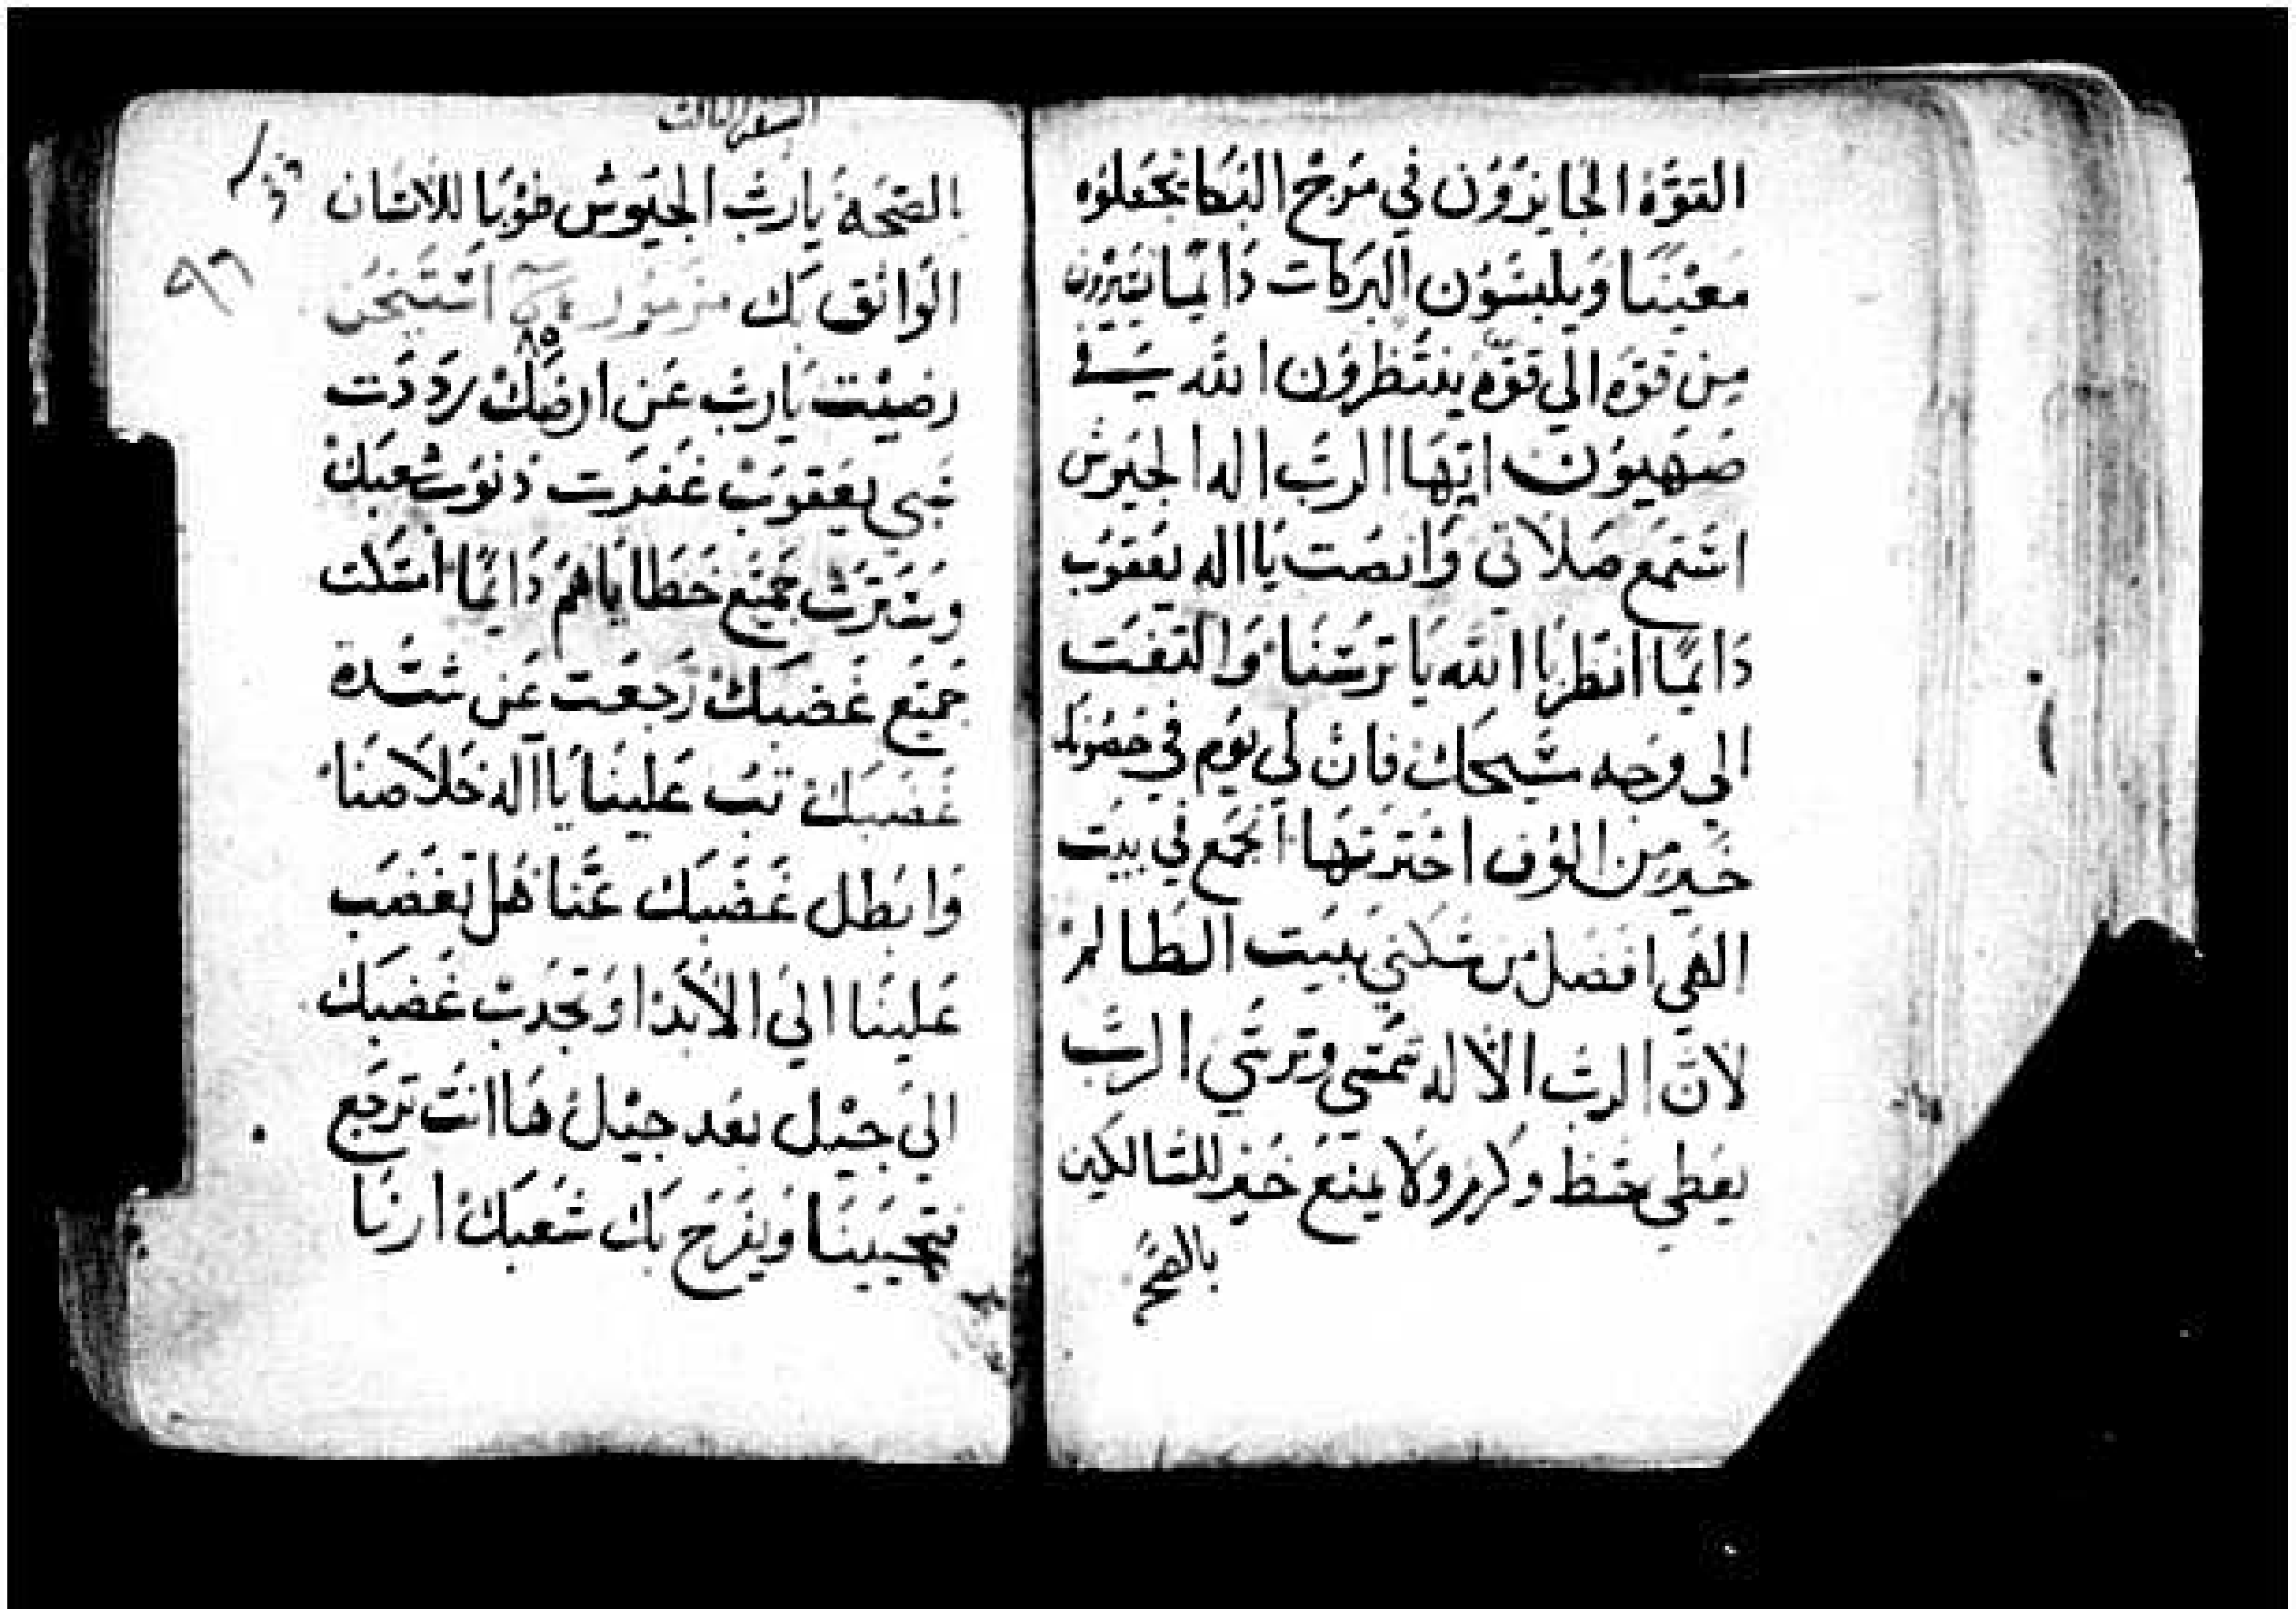 القوَّة الجايزوُن في مَرْج البُكا نجعَلوُه
معيْنَا وَيلبسَوُن البرَكات دَايماً يَسَيرون
مِن قوَه الي قوَّه ينتَظروُن الله في
صَهيوُن ايّهَا الرَبّ اله الجيَوش
اسْتمَع صَلاتي وَانصت يَا اله يعَقوُب
دَايماً انظر يَا الله يَا ترسْنَا وَالتفت
الي وجَه مسَيحَك فانْ لي يوَم في حصُونك
خَير مِن الوُف اختَرتهَا انجمَع في بيَت
الهَي افضَل من سَكني بيَت الظَالم
لأنَّ الربّ الأله شمسَي وترسَي الربّ
يعَطي حَظ وكَرم ولا يمنَع خيَر للسَالكين
بالصحَّه
السفر الثالث
الصَحَة يَارَبّ الجيَوش طوُبَا للأنسَان
الوَاثق بَك مزموُر
٨٥
رضيْت يَاربّ عَن ارضَكْ رَدَدَت
سَبي يعَقوَبْ غَفرَت ذنوُب شعبَكْ
وسَترَت جمَيع خَطايَاهمْ دَايماً امسَكت
جَميَع غَضبَكْ رَجعَت عَن شدَة
غَضبَكْ تبُ عَلينَا يَا اله خلَاصنَا
وَابَطل غَضَبَك عَنّا هَل تغَضَب
عَلينَا اليَ الأبَد اوَ تجَدبْ غَضبَك
اليَ جيْل بعَد جيْل هَا انتَ ترَجع
فتحيَينَا وَيفرَح بَك شَعبَكْ ارنَا